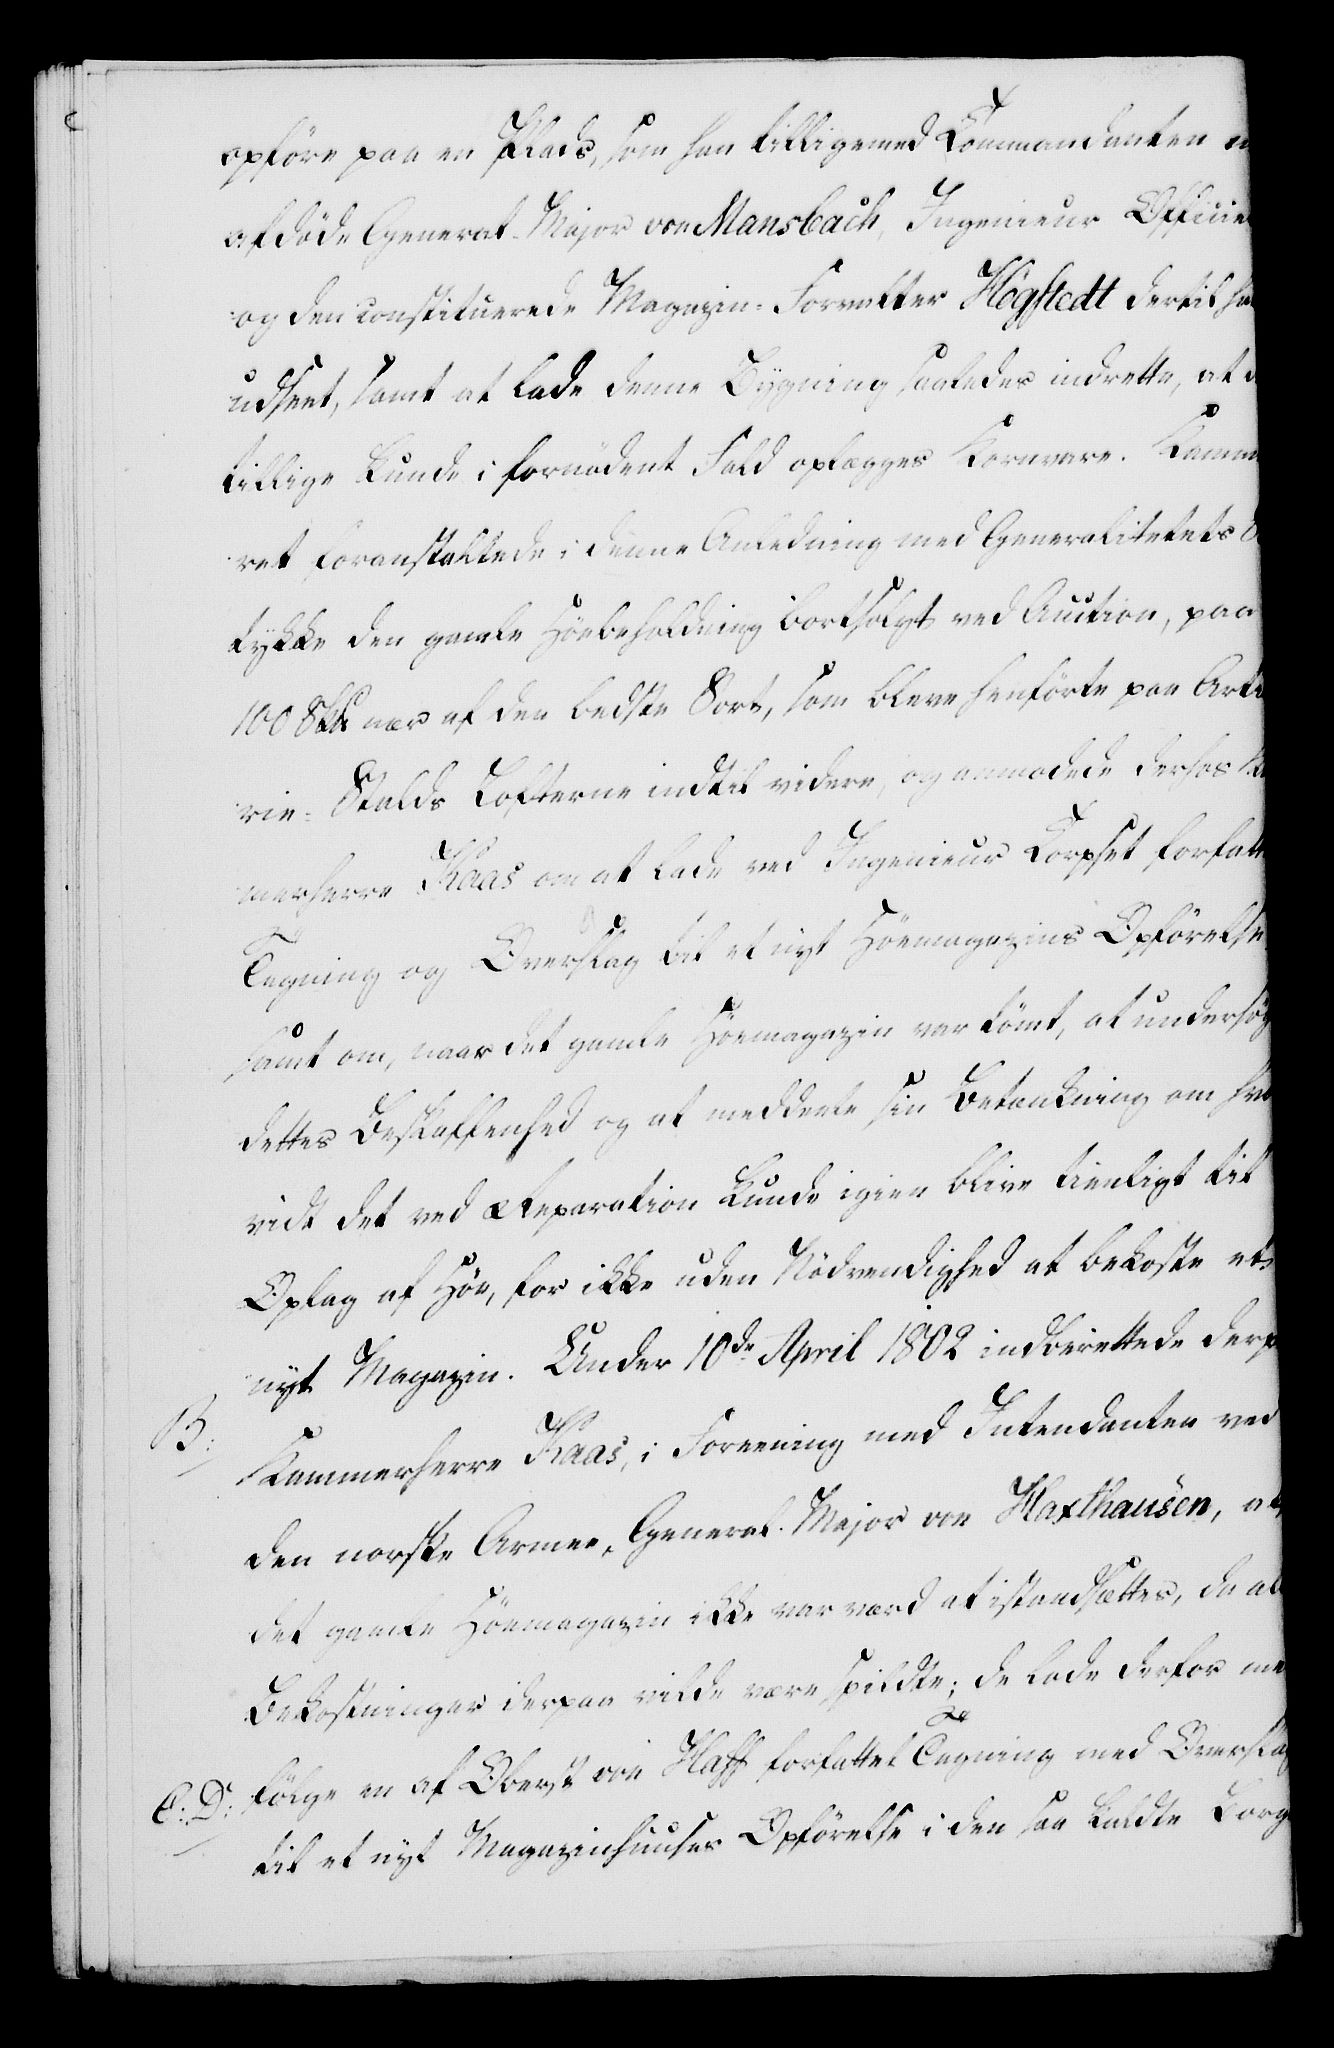 opføre paa en Plads, som han tilligemed Commandanten
afdøde General-Major von Mansbach, Ingenieur Officie
og den constituerede Magazin-Forvalter Høgstedt dertil ha
udseet, samt at lade denne Bygning saaledes indrette, at d
tillige kunde i fornødent Fald oplægges Kornvare. Kamme
ret foranstaltede i denne Anledning med Generalitetets
tykke den gamle Høebeholdning bortsolgt ved Auction, paa
100 nær af den bedste Sort, som bleve henførte paa Artil
rie-Stalds Lofterne indtil videre, og anmodede derhos Ka
merherre Kaas om at lade ved Ingenieur Corpset forfatte
Tegning og Overslag til et nyt Høemagazins Opførelse
samt om, naar det gamle Høemagazin var tømt, at undersøg
dettes Beskaffenhed og at meddele sin Betænkning om hvo
vidt det ved Reparation kunde igien blive tienligt til
Oplag af Høe, for ikke uden Nødvendighed at bekoste et
nyt Magazin. Under 10de April 1802 indberettede derp
B:
Kammerherre Kaas, i Forening med Intendanten ved
den norske Armee, General-Major von Haxthausen, at
det gamle Høemagazin ikke var værd at istandsættes, da al
Bekostninger derpaa vilde være spildte; de lode derfor me
C: D: følge en af Oberst von Haff forfattet Tegning med Overslag
til et nyt Magazinhuuses Opførelse i den saa kaldte Borg